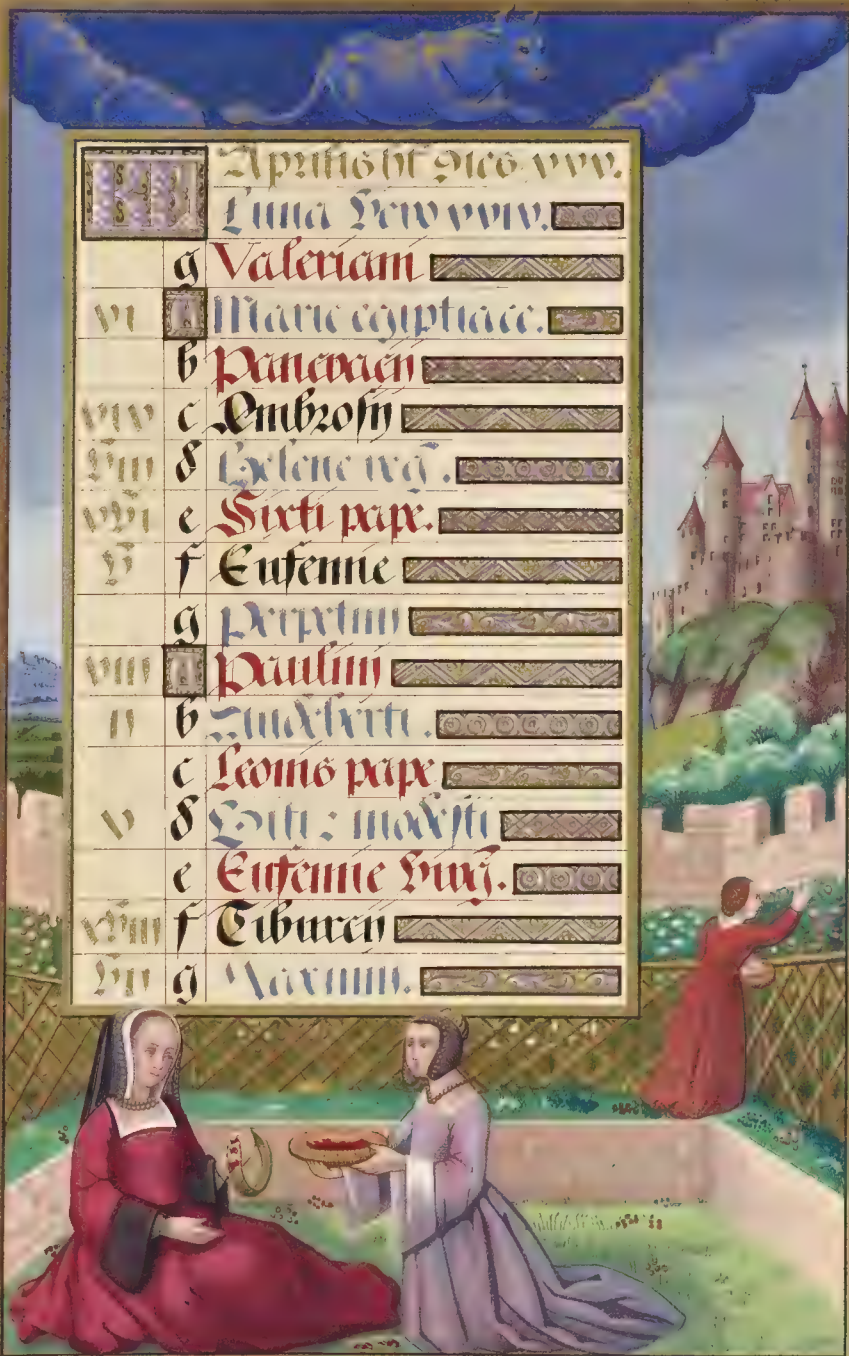 KL Aprilis ht dies xxx.
Luna vero xxix.
g Valeriani
xi A Marie egiptiace.
b Pancracij
xix c Ambrosij
viii d Helene reg̃.
xvi e Sixti pape.
v f Eufemie
g Perpetuii
xiii A Paulini
ii b
c Leonis pape
x d Viti z modesti
e Eufemie virg̃.
xviii f Tiburcij
vii g Maximi.